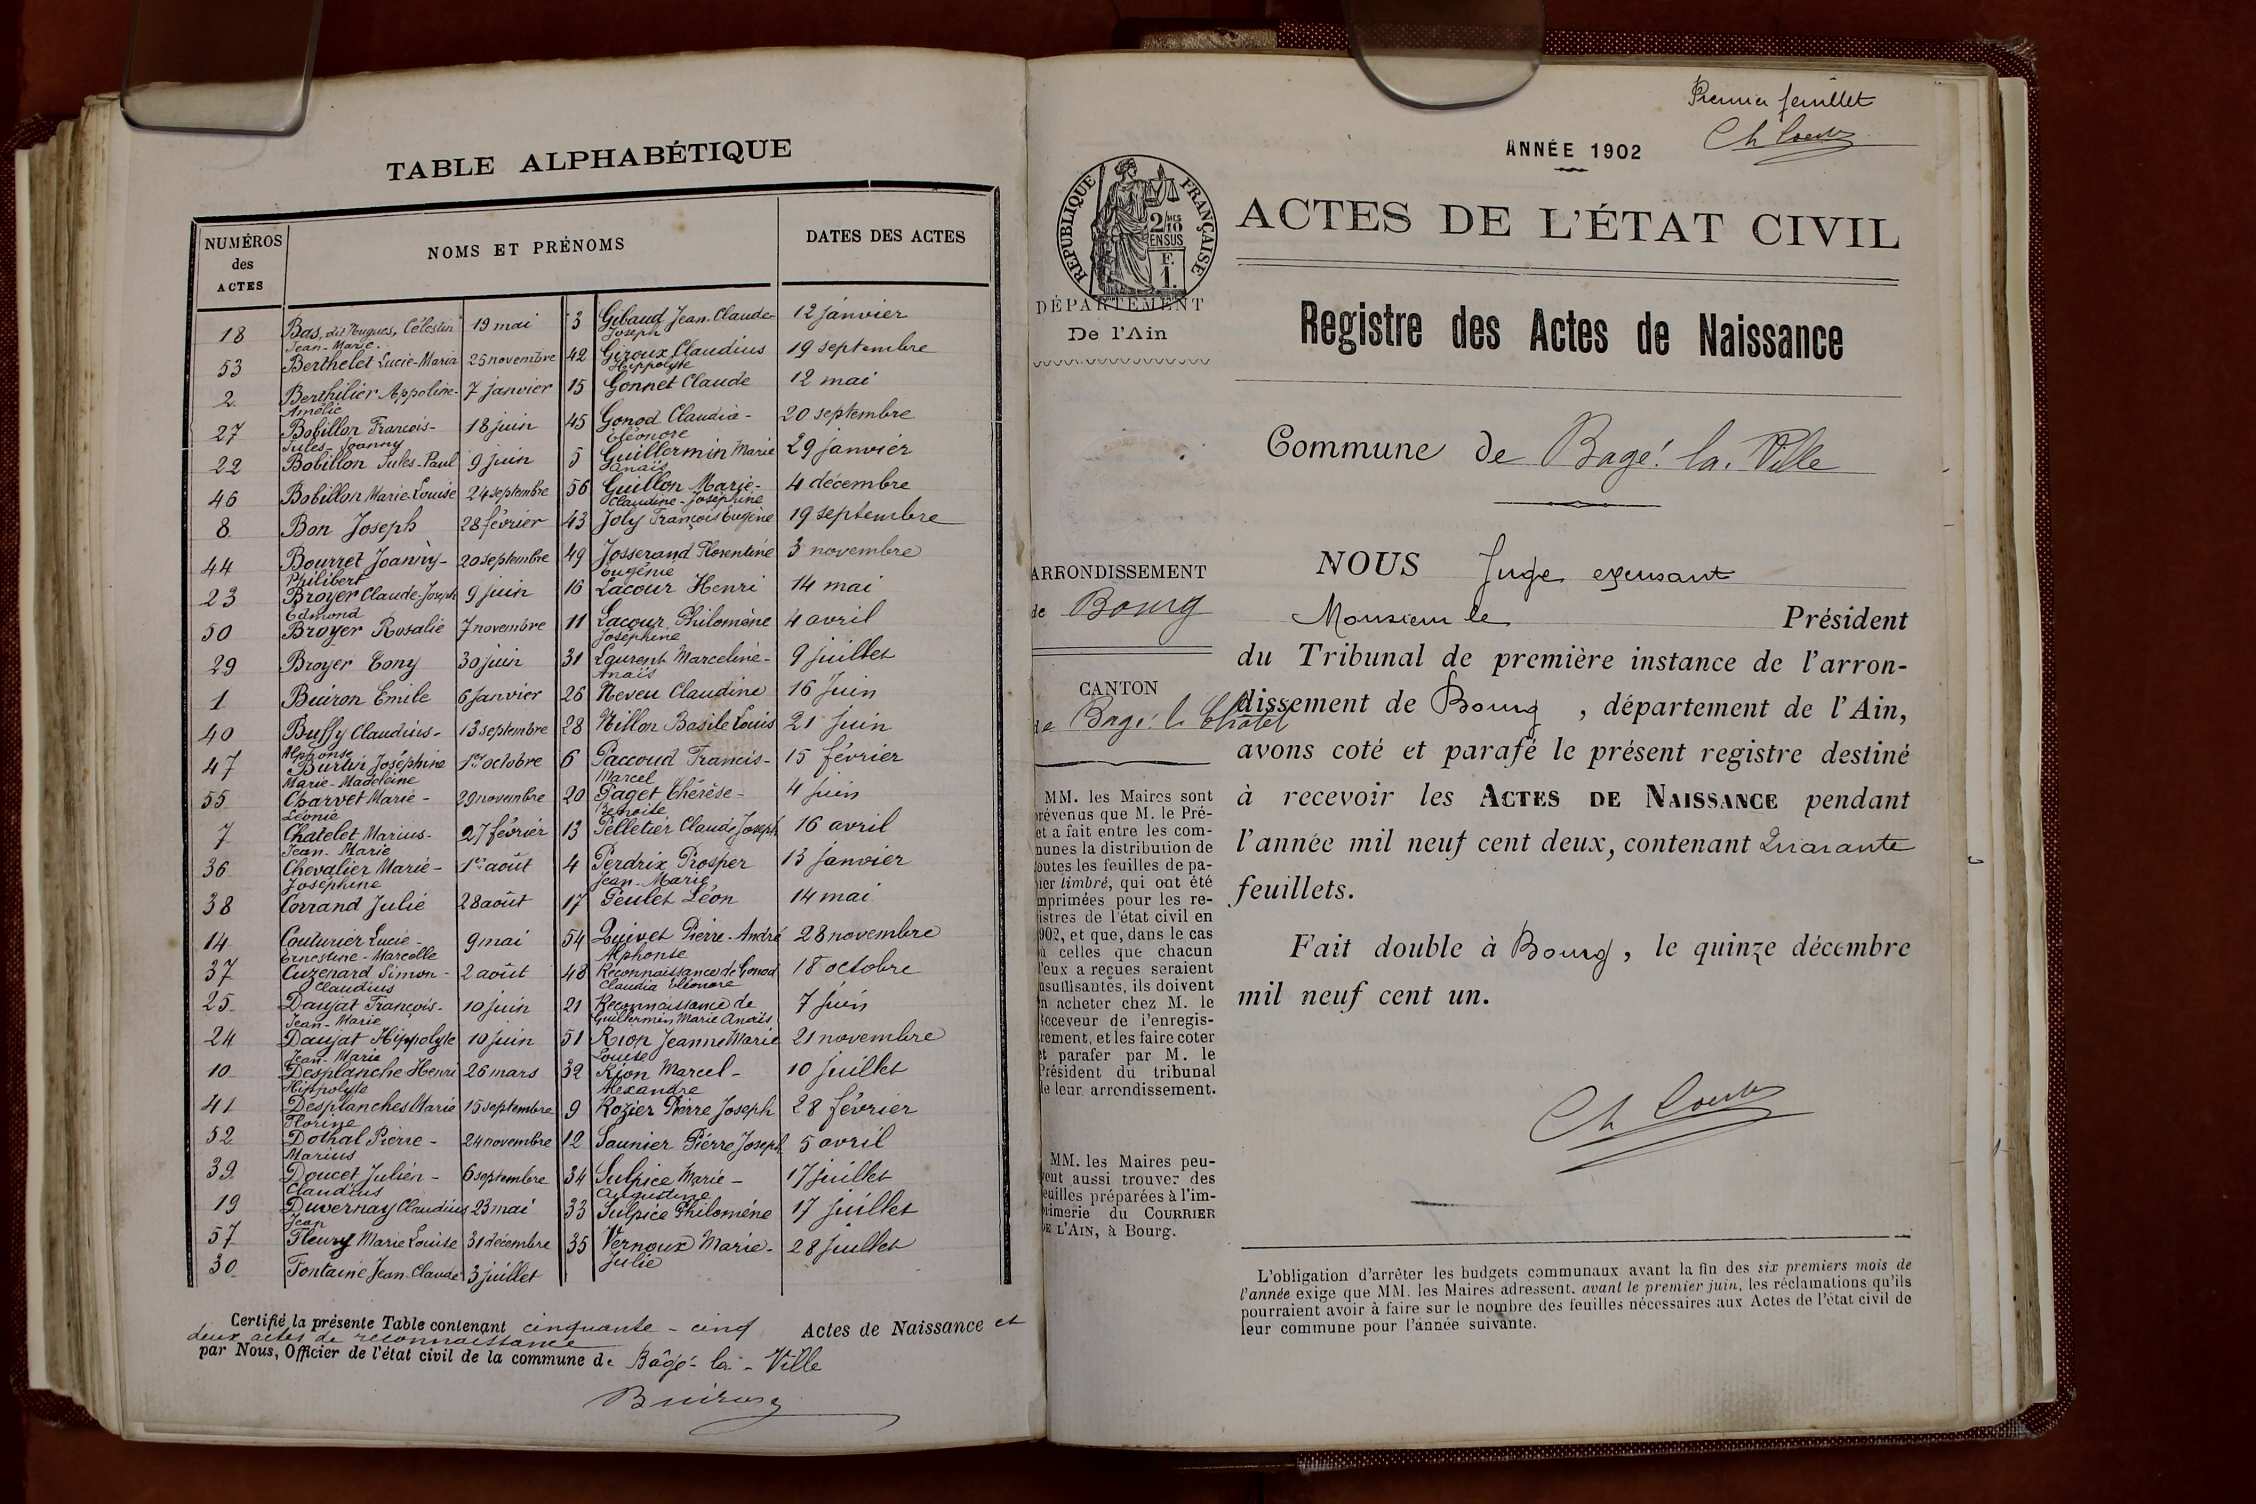 TABLE ALPHABÉTIQUE
NUMÉROS
des
ACTES
NOMS ET PRÉNOMS
DATES DES ACTES
18 Bas, dit Hugues, Célestin 19 mai
Jean-Marie
53 Berthelet Lucie-Maria 25 novembre
2 Berthilier Appoline- 7 janvier
Amélie
27 Bobillon François- 18 juin
Jules-Joanny
22 Bobillon Jules-Paul 9 juin
46 Bobillon Marie-Louise 24 septembre
8 Bon Joseph 28 février
44 Bourret Joanny- 20 septembre
Philibert
23 Broyer Claude-Joseph 9 juin
Edmond
50 Broyer Rosalie 7 novembre
29 Broyer Tony 30 juin
1 Buiron Emile 6 janvier
40 Buffy Claudius- 13 septembre
Alphonse
47 Burtin Joséphine 1er octobre
Marie-Madeleine
55 Charvet Marie- 29 novembre
Léonie
7 Chatelet Marius- 27 février
Jean-Marie
36 Chevalier Marie- 1er août
Joséphine
38 Corrand Julie 28 août
14 Couturier Lucie- 9 mai
Ernestine-Marcelle
37 Cuzenard Simon- 2 août
Claudius
25 Daujat François- 10 juin
Jean-Marie
24 Daujat Hippolyte 10 juin
Jean-Marie
10 Desplanche Henri 26 mars
Hippolyte
41 Desplanches Marie 15 septembre
Florine
52 Dothal Pierre- 24 novembre
Marius
39 Doucet Julien- 6 septembre
Claudius
19 Duvernay Claudius 23 mai
Jean
57 Fleury Marie Louise 31 décembre
30 Fontaine Jean-Claude 3 juillet
3 Gibaud Jean-Claude- 12 janvier
Joseph
42 Giroux Claudius 19 septembre
Hippolyte
15 Gonnet Claude 12 mai
45 Gonod Claudia- 20 septembre
Eléonore
5 Guillermin Marie 29 janvier
Anaïs
56 Guillon Marie- 4 décembre
Claudine-Joséphine
43 Joly François Eugène 19 septembre
49 Josserand Florentine 3 novembre
Eugénie
16 Lacour Henri 14 mai
11 Lacour Philomène 4 avril
Joséphine
31 Laurent Marceline- 9 juillet
Anaïs
26 Neveu Claudine 16 Juin
28 Nillon Basile Louis 21 Juin
6 Paccoud Francis- 15 février
Marcel
20 Paget Thérèse- 4 juin
Benoite
13 Pelletier Claude Joseph 16 avril
4 Perdrix Prosper 13 janvier
Jean-Marie
17 Peulet Léon 14 mai
54 Quivet Pierre-André 28 novembre
Alphonse
48 Reconnaissance de Gonod 18 octobre
Claudia Eléonore
21 Reconnaissance de 7 juin
Guillermin Marie Anaïs
51 Rion Jeanne Marie 21 novembre
Louise
32 Rion Marcel- 10 juillet
Alexandre
9 Rozier Pierre Joseph 28 février
12 Saunier Pierre Joseph 5 avril
34 Sulpice Marie- 17 juillet
Augustine
33 Sulpice Philomène 17 juillet
35 Vernoux Marie- 28 juillet
Julie
Certifié la présente Table contenant cinquante-cinq Actes de Naissance et
deux actes de reconnaissance
par Nous, Officier de l'état civil de la commune de Bâgé-la-Ville
Buiron
Premier feuillet
ANNÉE 1902
RÉPUBLIQUE FRANÇAISE
2/10 MES
EN SUS
F.
1.
ACTES DE L'ÉTAT CIVIL
DÉPARTEMENT
De l'Ain
Registre des Actes de Naissance
Commune de Bagé la Ville
ARRONDISSEMENT
de Bourg
CANTON
de Bagé le Châtel
MM. les Maires sont
prévenus que M. le Pré-
et a fait entre les com-
munes la distribution de
toutes les feuilles de pa-
pier timbré, qui ont été
imprimées pour les re-
istres de l'état civil en
902, et que, dans le cas
où celles que chacun
d'eux a reçues seraient
insuffisantes, ils doivent
en acheter chez M. le
Receveur de l'enregis-
trement, et les faire coter
et parafer par M. le
Président du tribunal
de leur arrondissement.
MM. les Maires peu-
vent aussi trouver des
feuilles préparées à l'im-
primerie du COURRIER
DE L'AIN, à Bourg.
NOUS Juge exensant
Monsieur le Président
du Tribunal de première instance de l'arron-
dissement de Bourg, département de l'Ain,
avons coté et parafé le présent registre destiné
à recevoir les ACTES DE NAISSANCE pendant
l'année mil neuf cent deux, contenant Quarante
feuillets.
Fait double à Bourg, le quinze décembre
mil neuf cent un.
L'obligation d'arrêter les budgets communaux avant la fin des six premiers mois de
l'année exige que MM. les Maires adressent, avant le premier juin, les réclamations qu'ils
pourraient avoir à faire sur le nombre des feuilles nécessaires aux Actes de l'état civil de
leur commune pour l'année suivante.